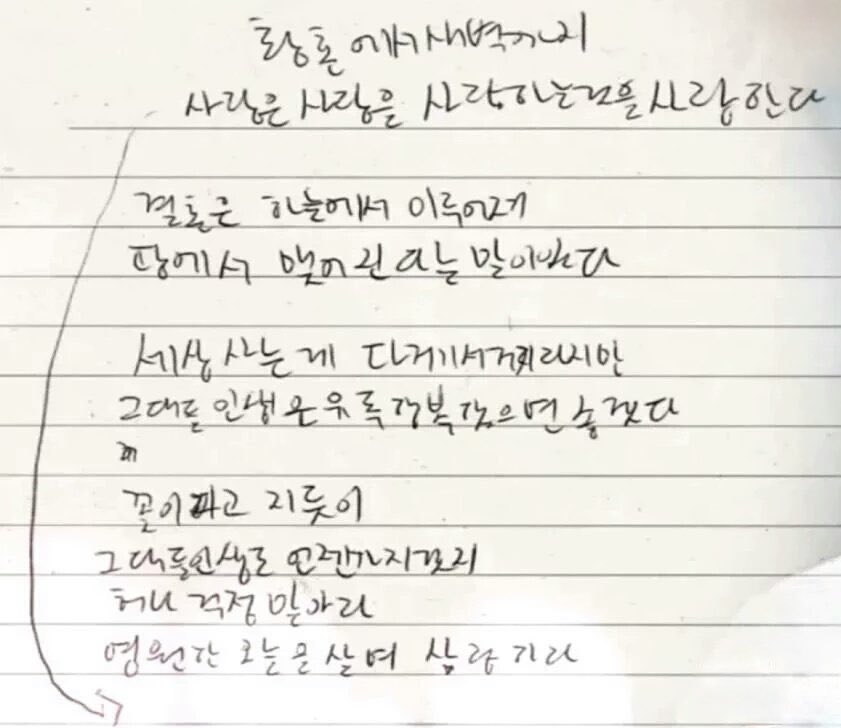 황혼에서 새벽까지
사랑은 사랑을 사랑하는 것을 사랑한다
결혼은 하늘에서 이루어져
땅에서 맺어진다는 말이 있다
세상 사는 게 다 거기서 거기라지만
그대들 인생은 유독 행복했으면 좋겠다
꽃이 피고 지듯이
그대들 인생도 언젠가 지겠지
허나 걱정 말아라
영원한 오늘을 살며 사랑하라